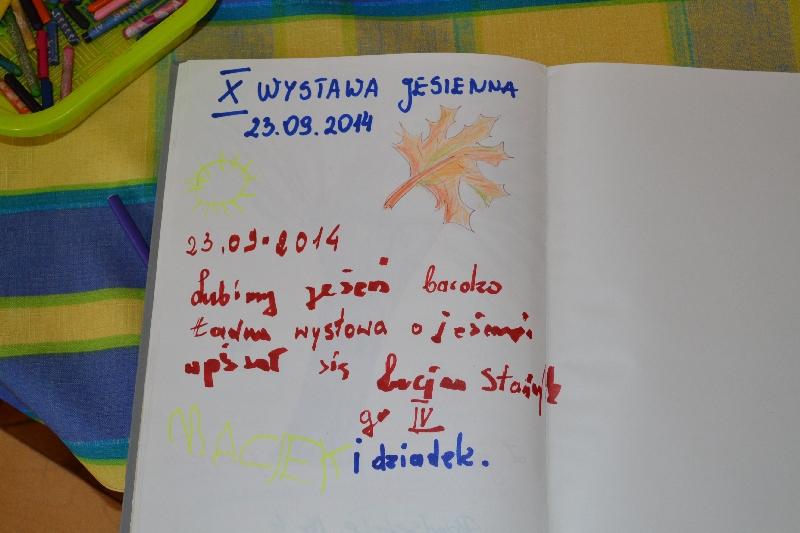 X WYSTAWA JESIENNA
23.09.2014
23.09.2014
Lubimy jesień bardzo
Ładna wystawa o jesieni
wpisał się Łucjan
gr IV
MACIEK i dziadek.